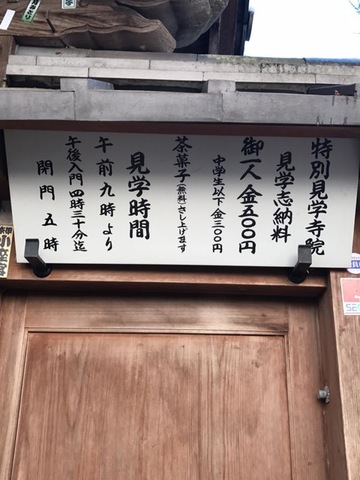 特別見学寺院
見学志納料
御一人金五〇〇円
中学生以下金三〇〇円
茶菓子(無料)さし上げます
見学時間
午前九時より
午後入門四時三十分迄
閉門五時